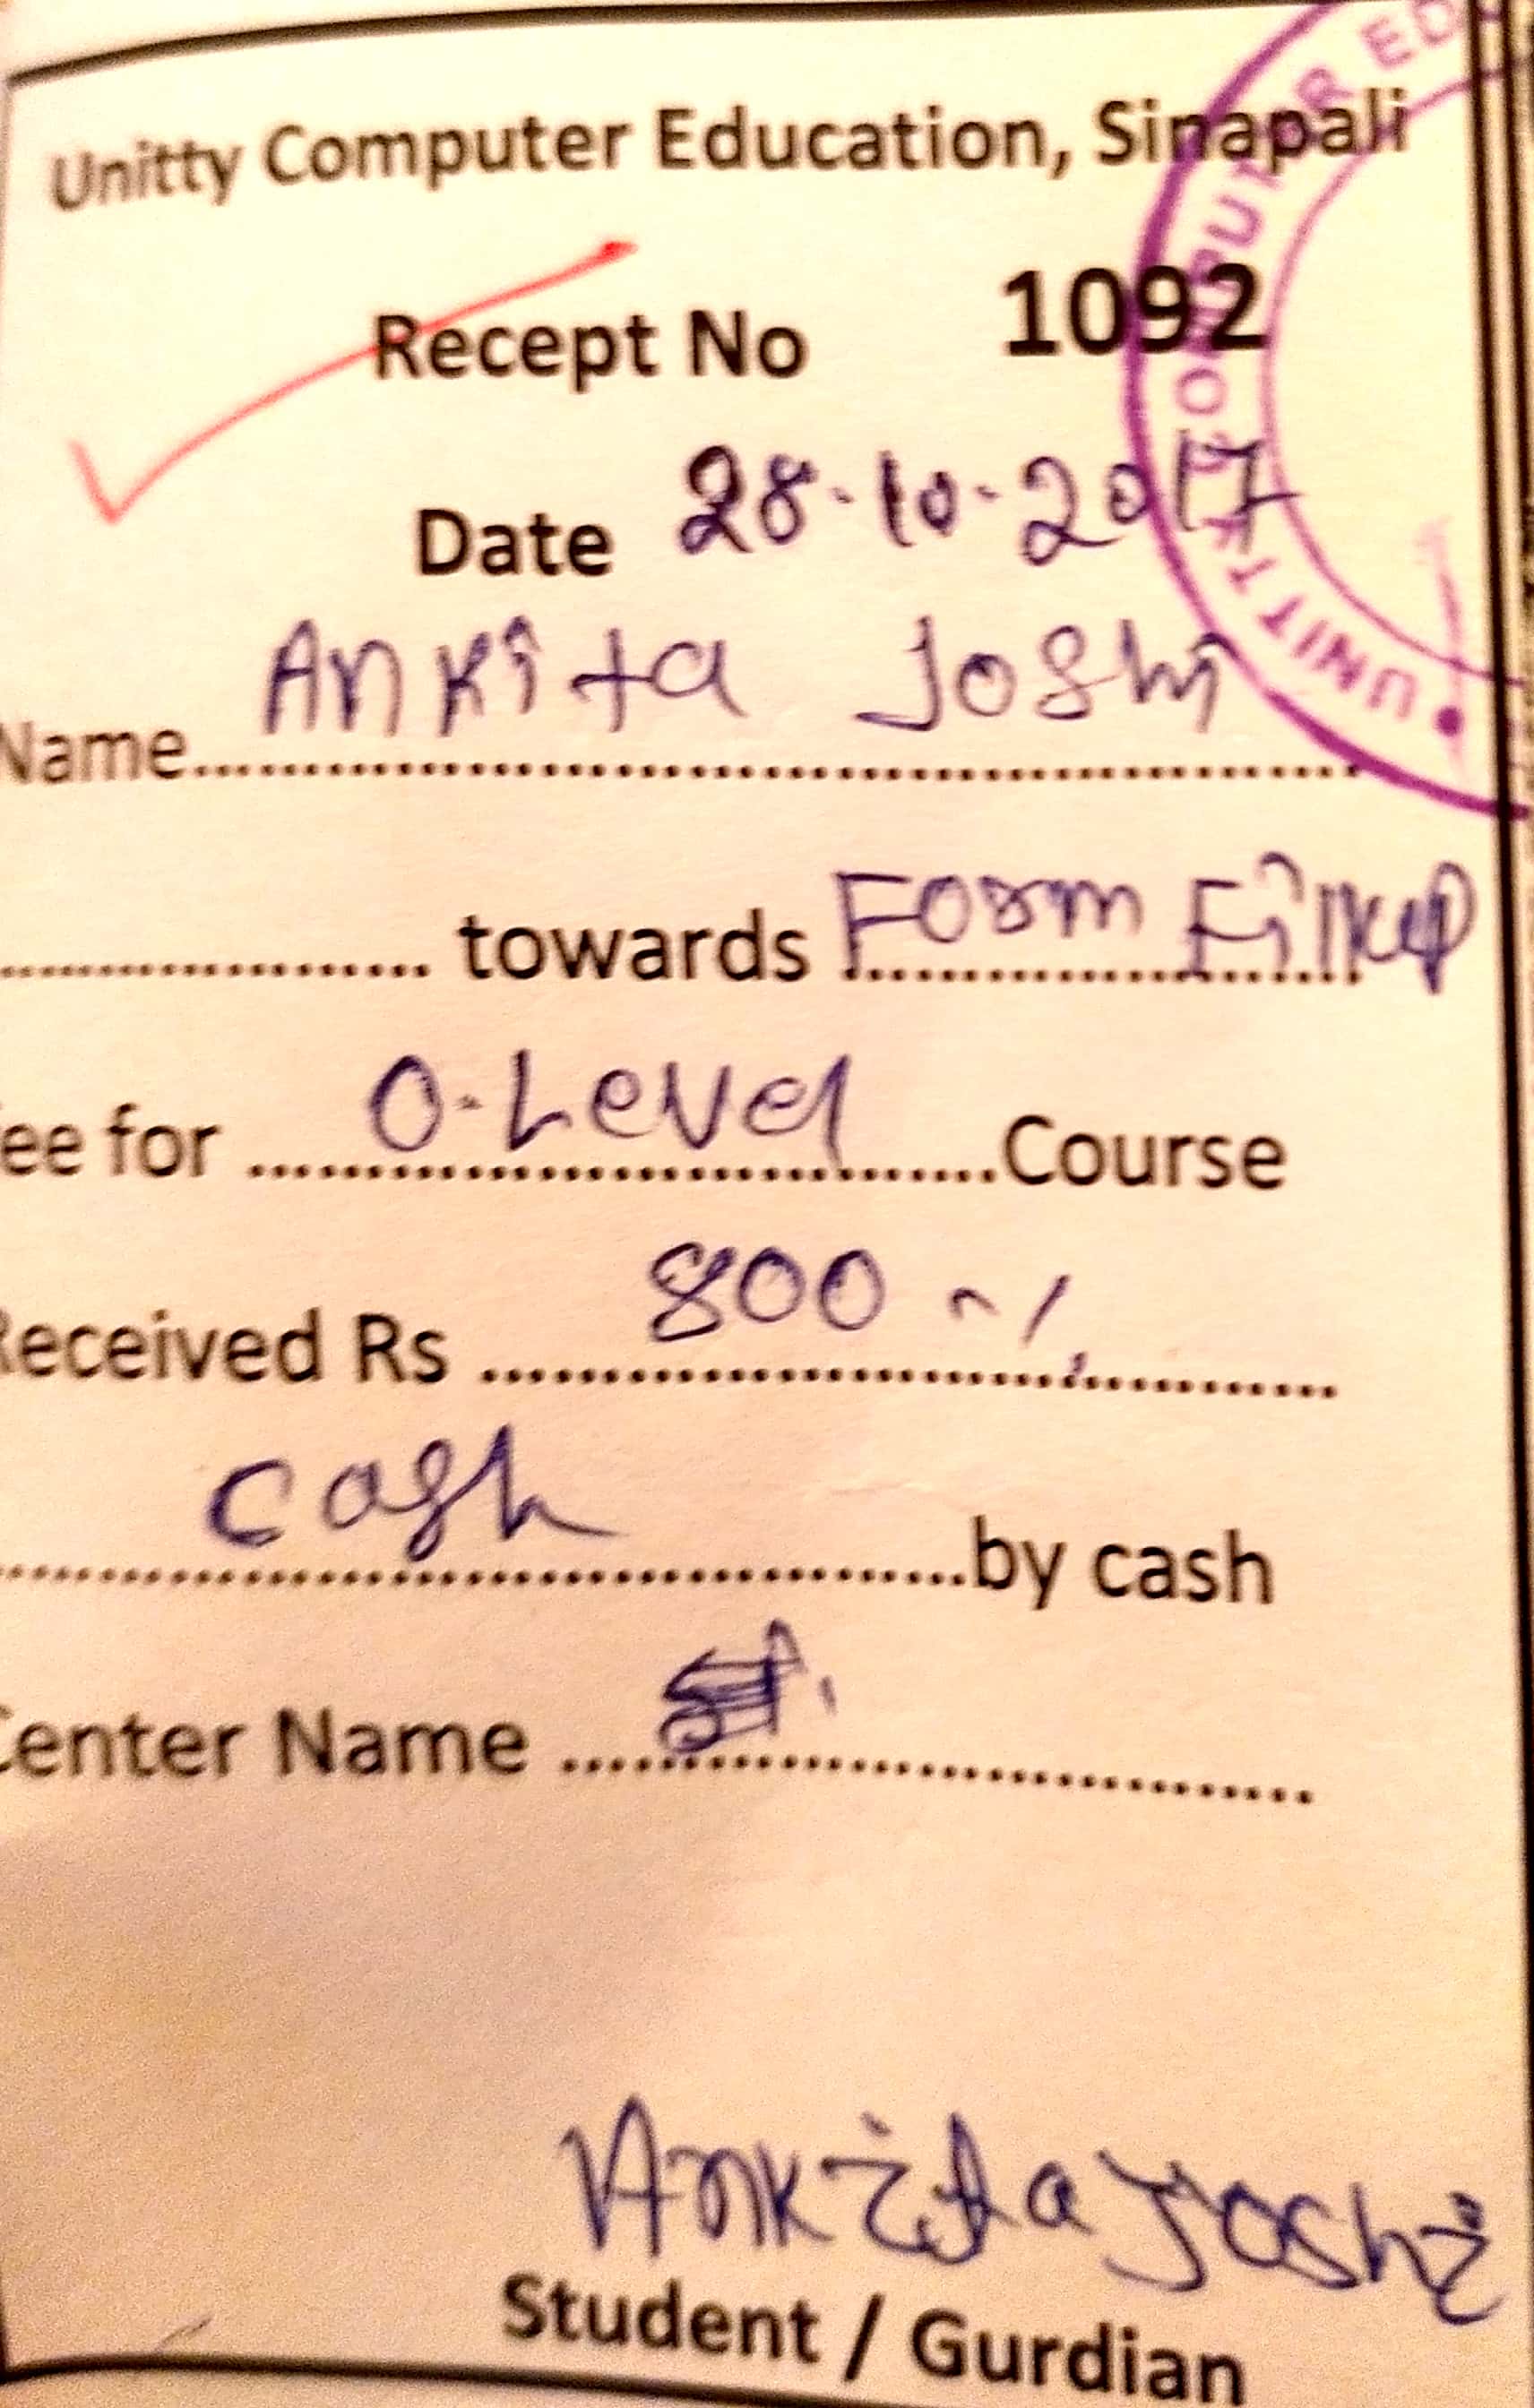 Unitty Computer Education, Sinapali
Recept No 1092
Date 28.10.2017
Name Ankita Joshi
towards Form Fillup
ee for O-Level Course
Received Rs 800 -/.
cash by cash
Center Name
Ankita Joshi
Student / Gurdian
UNITTY COMPUTER ED